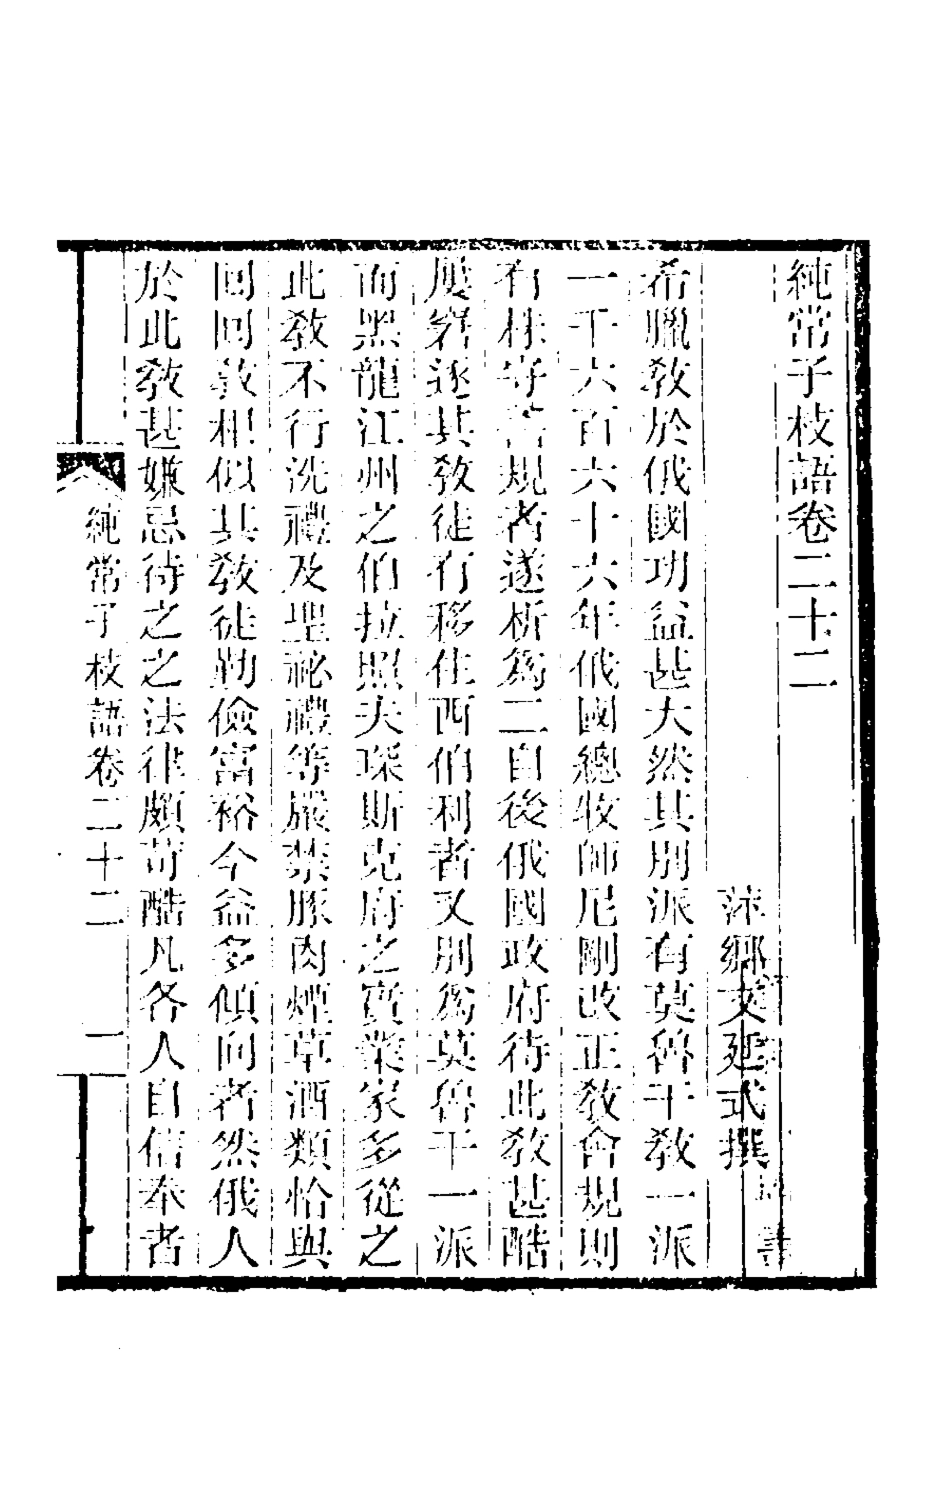 純常子枝語卷二十二
萍鄉文廷式撰
希臘教於俄國功益甚大然其別派有莫魯干教一派
一千六百六十六年俄國總牧師尼剛改正教會規則
有株守舊規者遂析爲二自後俄國政府待此教甚酷
屢窘逐其教徒有移住西伯利者又別爲莫魯干一派
而黑龍江州之伯拉照夫琛斯克府之實業家多從之
此教不行洗禮及聖祕禮等嚴禁豚肉煙草酒類恰與
回回教相似其教徒勤儉富裕今益多傾向者然俄人
於此教甚嫌忌待之之法律頗苛酷凡各人自信奉者
純常子枝語卷二十二
一